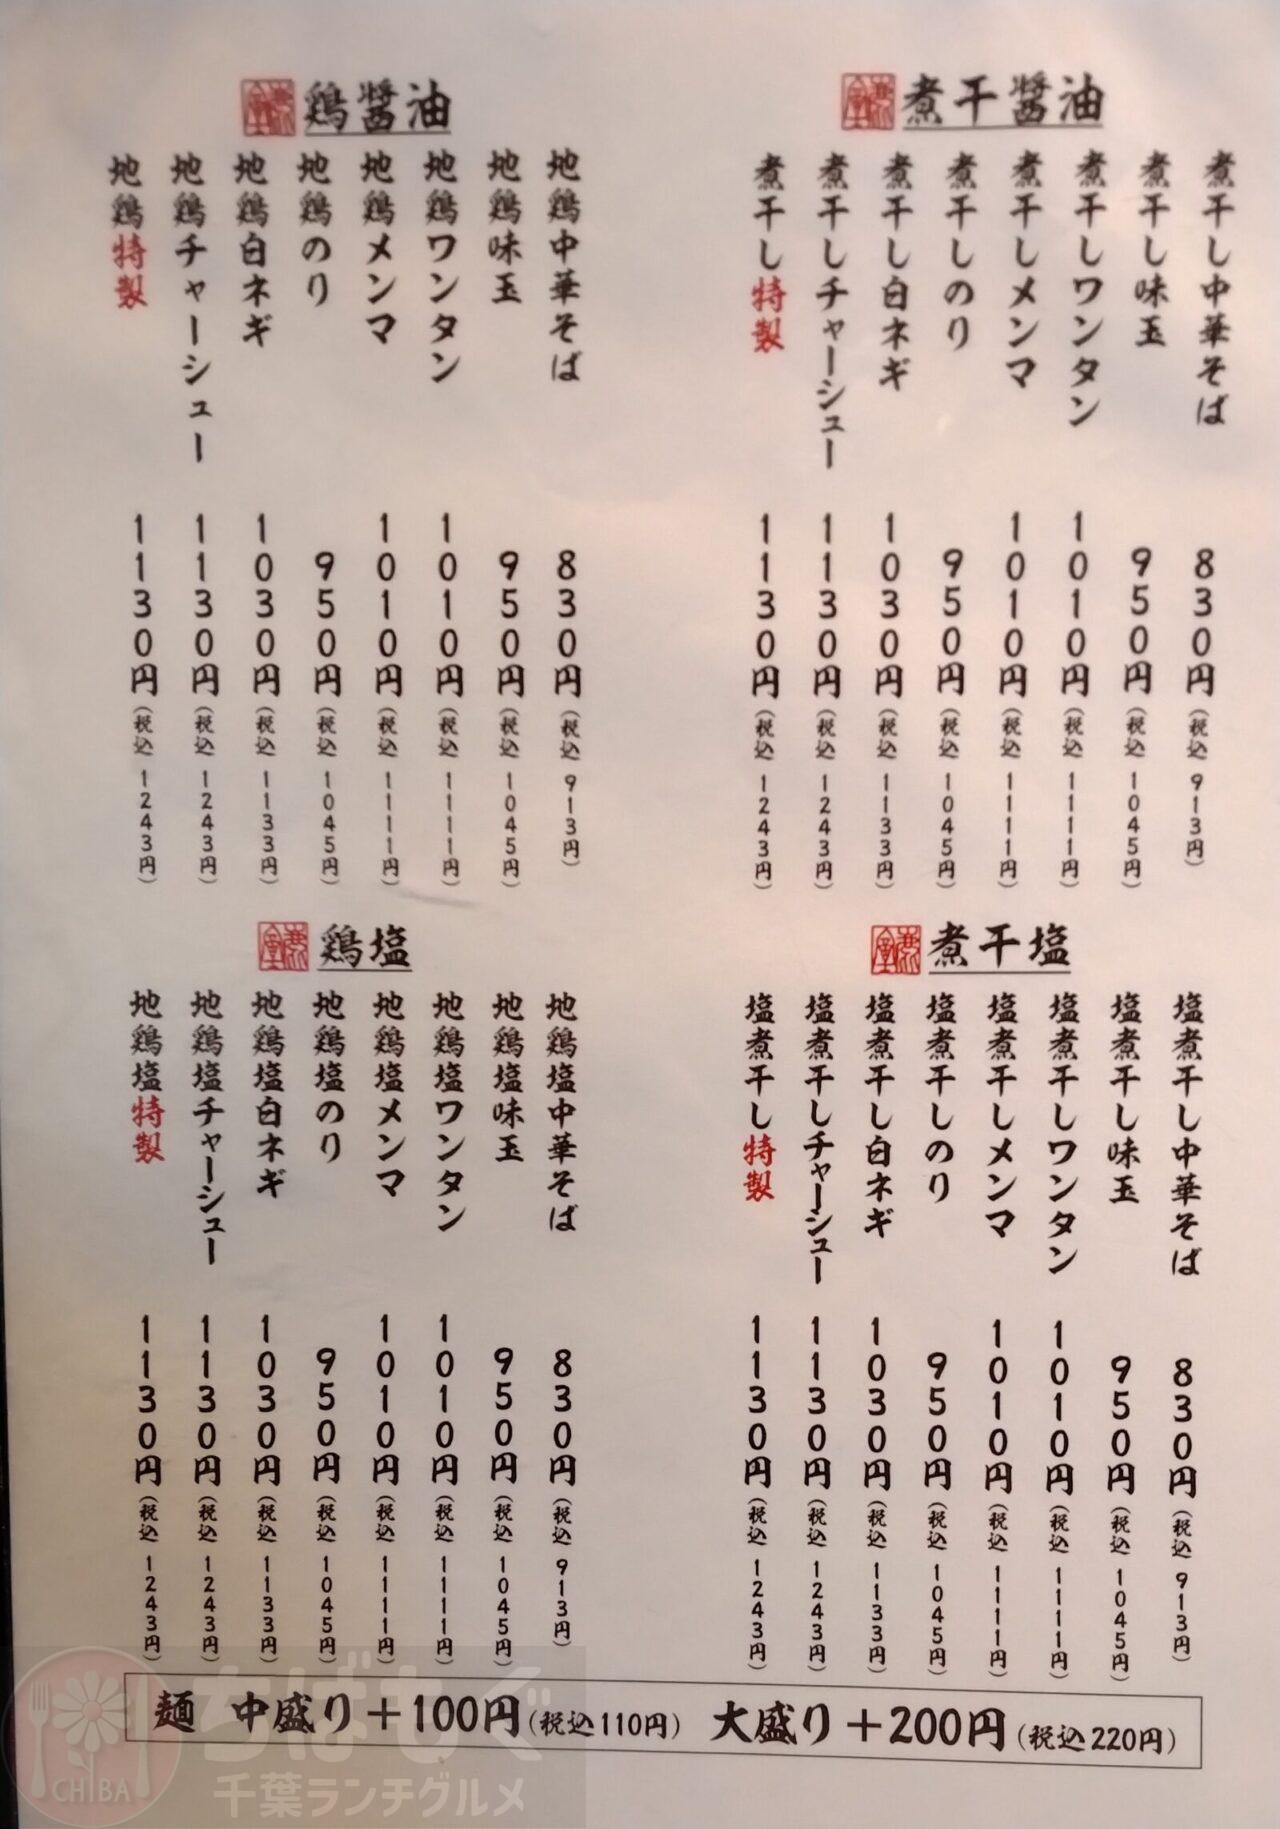 煮干醤油
煮干し中華そば 830円(税込 913円)
煮干し味玉 950円(税込 1045円)
煮干しワンタン 1010円(税込 1111円)
煮干しメンマ 1010円(税込 1111円)
煮干しのり 950円(税込 1045円)
煮干し白ネギ 1030円(税込 1133円)
煮干しチャーシュー 1130円(税込 1243円)
煮干し特製 1130円(税込 1243円)
鶏醤油
地鶏中華そば 830円(税込 913円)
地鶏味玉 950円(税込 1045円)
地鶏ワンタン 1010円(税込 1111円)
地鶏メンマ 1010円(税込 1111円)
地鶏のり 950円(税込 1045円)
地鶏白ネギ 1030円(税込 1133円)
地鶏チャーシュー 1130円(税込 1243円)
地鶏特製 1130円(税込 1243円)
煮干塩
塩煮干し中華そば 830円(税込 913円)
塩煮干し味玉 950円(税込 1045円)
塩煮干しワンタン 1010円(税込 1111円)
塩煮干しメンマ 1010円(税込 1111円)
塩煮干しのり 950円(税込 1045円)
塩煮干し白ネギ 1030円(税込 1133円)
塩煮干しチャーシュー 1130円(税込 1243円)
塩煮干し特製 1130円(税込 1243円)
鶏塩
地鶏塩中華そば 830円(税込 913円)
地鶏塩味玉 950円(税込 1045円)
地鶏塩ワンタン 1010円(税込 1111円)
地鶏塩メンマ 1010円(税込 1111円)
地鶏塩のり 950円(税込 1045円)
地鶏塩白ネギ 1030円(税込 1133円)
地鶏塩チャーシュー 1130円(税込 1243円)
地鶏塩特製 1130円(税込 1243円)
麺 中盛り+100円(税込110円) 大盛り+200円(税込220円)
ちばもぐ
千葉ランチグルメ
CHIBA